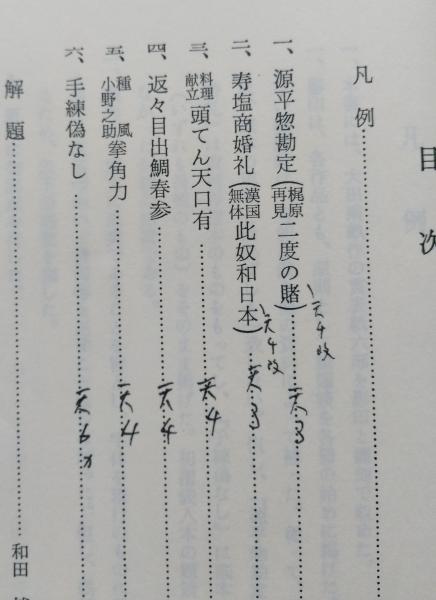 目次
凡例
一、源平惣勘定(梶原再見二度の賭) 天3
天4改
二、寿塩商婚礼(漢国無体此奴和日本) 天3
天4改
三、料理献立頭てん天口有 天4
四、返々目出鯛春参 天4
五、種風小野之助拳角力 天4
六、手練偽なし 天6カ
解題 和田